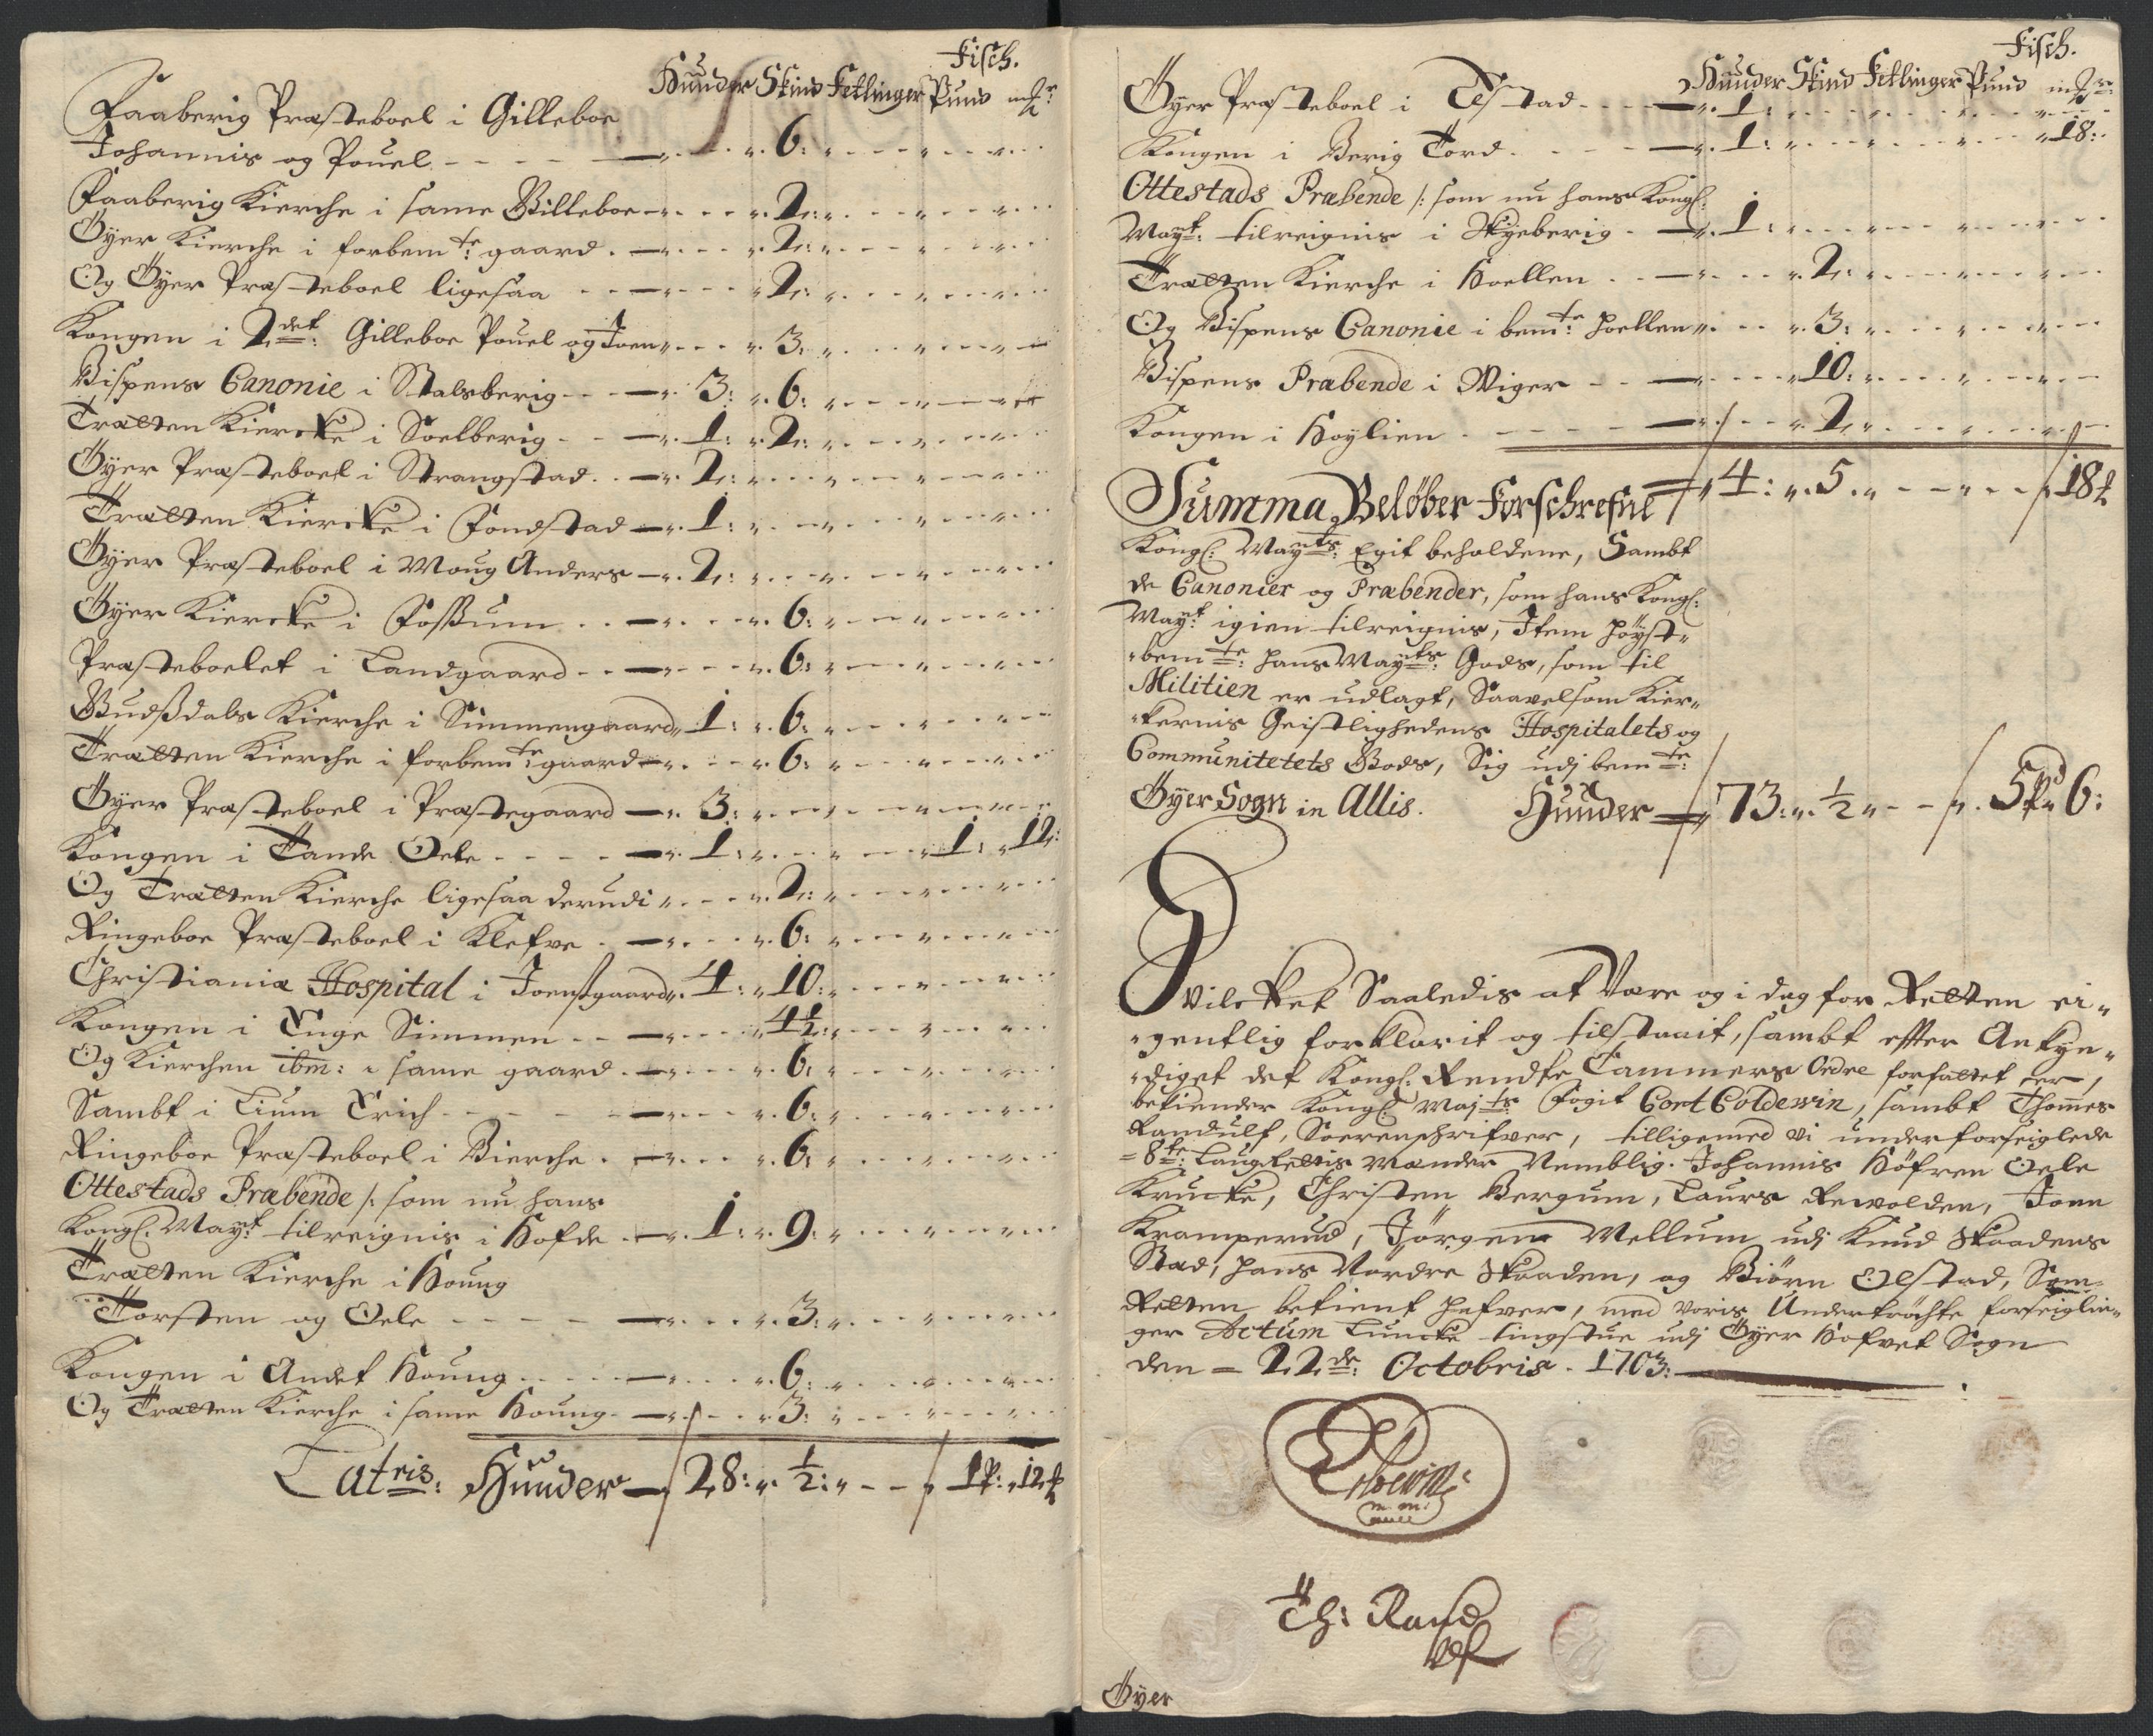 Fisch.
Huuder Skind Fetlinger Pund mkr
Faaberig Præsteboel i Gilleboe
Johannis og Pouel - - - - 6:
Faaberig Kierche i same Gilleboe - - 2:
Öyer Kierche i forbemte: gaard. - - 2:
Og Öyer Præsteboel ligesaa - - 2:
Kongen i 2det: Gilleboe Pouel og Joen - - 3:
Bispens Canonie i Stalsberig - - 3: 6:
Trætten Kiercke i Soelberig - - 1: 2:
Öyer Præsteboel i Strangstad. - - 2:
Trætten Kiercke i Fondstad - 1:
Öyer Præsteboel i Moug Anders - 2:
Öyer Kiercke i Fossum - - 6:
Præsteboelet i Landgaard - - 6:
Gudssdals Kierche i Simmengaard 1: 6:
Trætten Kierche i forbemte: gaard - 6:
Öyer Præsteboel i Præstegaard - 3:
Kongen i Tande Oele - - - - 1: 1: 12:
Og Trætten Kierche ligesaa derudi - 2:
Ringeboe Præsteboel i Klefve - - 6:
Christiania Hospital i Joenssgaard 4: 10:
Kongen i Enge Simmen - - 4½:
Og Kierchen ibm: i same gaard. - 6:
Sambt i Lium Erich - - - - 6:
Ringeboe Præsteboel i Bierche. - 6:
Ottestads Præbende /: som nu hans
Kongl: Mayt: tilreignis i Hofde - 1: 9:
Trætten Kierche i Houng
Torsten og Oele - - - - 3:
Kongen i Andet Houng - - - 6:
Og Trætten Kierche i same Houng - 3:
Latris: Huuder - 28: ½: - - 1p: 12
Fisch.
Huuder Skind Fetlinger Pund mkr:
Öyer Præsteboel i Elstad - - - 1:
Kongen i Berig Tord. - - - 1: 18:
Ottestads Præbende /: som nu hans Kongl:
Mayt: tilreignis i Skyeberig - 1:
Trætten Kierche i Hoellen - - 2:
Og Bispens Canonie i bemte: Hoellen - 3:
Bispens Præbende i Wiger - - 10:
Kongen i Hoylien - - - - 2:
Summa Beløber Forschrefne 4: 5 - - 18
Kongl: Mayts: Egit beholdene, Sambt
de Canonier og Præbender, som hans Kongl:
Mayt: igien tilreignis, Item höyst-
bemte: hans Mayts: Gods, som til
Militien er udlagt, Saavelsom Kier-
kernis Geistlighedens Hospitalets og
Communitetets Gods, Sig udj bemte:
Öyer Sogn in Allis. Huuder 73: ½ - - 5p 6:
Hvilcket Saaledis at Være og i dag for Retten ei-
gentlig forklarit og tilstaait, sambt effter Ankyn-
diget det Kongl: Rendte Cammers Ordre forfattet er,
bekiender Kongl: Majts: Fogit Cort Coldewin, sambt Thomes
Randulf, Sorenschrifver, tilligemed vi underforseiglede
= 8te: Laugrettis Mænder Nemblig. Johannis Höfren Oele
Kruke, Christen Bergum, Laurs Rewolden, Joen
Kramperud, Jörgen Mellum udj Knud Skaadens
Stad, hans Nordre Skaaden, og Biörn Elstad, Som
Retten betient hafver, med voris Undertröchte forseiglin-
ger Actum Luncke tingstue udj Öyer Hofvet Sogn
den = 22de: Octobris. 1703:
Th: Rand
ulf
Öyer